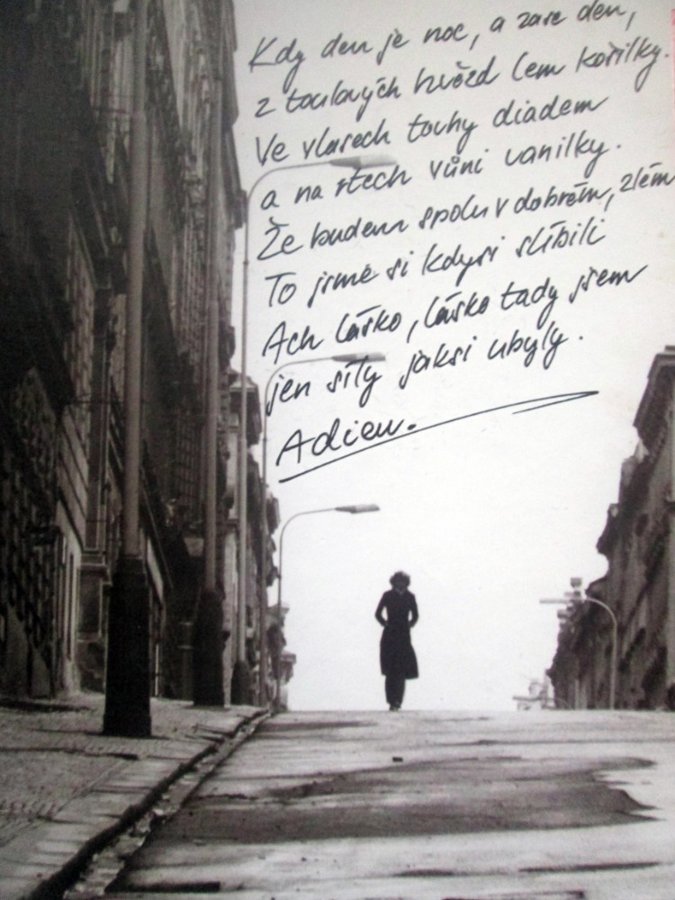 Kdy den je noc, a zase den,
z toulavých hvězd lem košilky.
Ve vlasech touhy diadem
a na rtech vůni vanilky.
Že budem spolu v dobrém, zlém
To jsme si kdysi slíbili
Ach lásko, lásko tady jsem
jen síly jaksi ubyly.
Adieu.